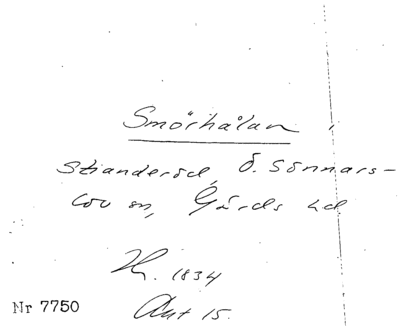 Smörhålan
Stranderöd, Ö. Sönnars-
löv sn, Gärds hd
1834
Ant 15.
Nr 7750